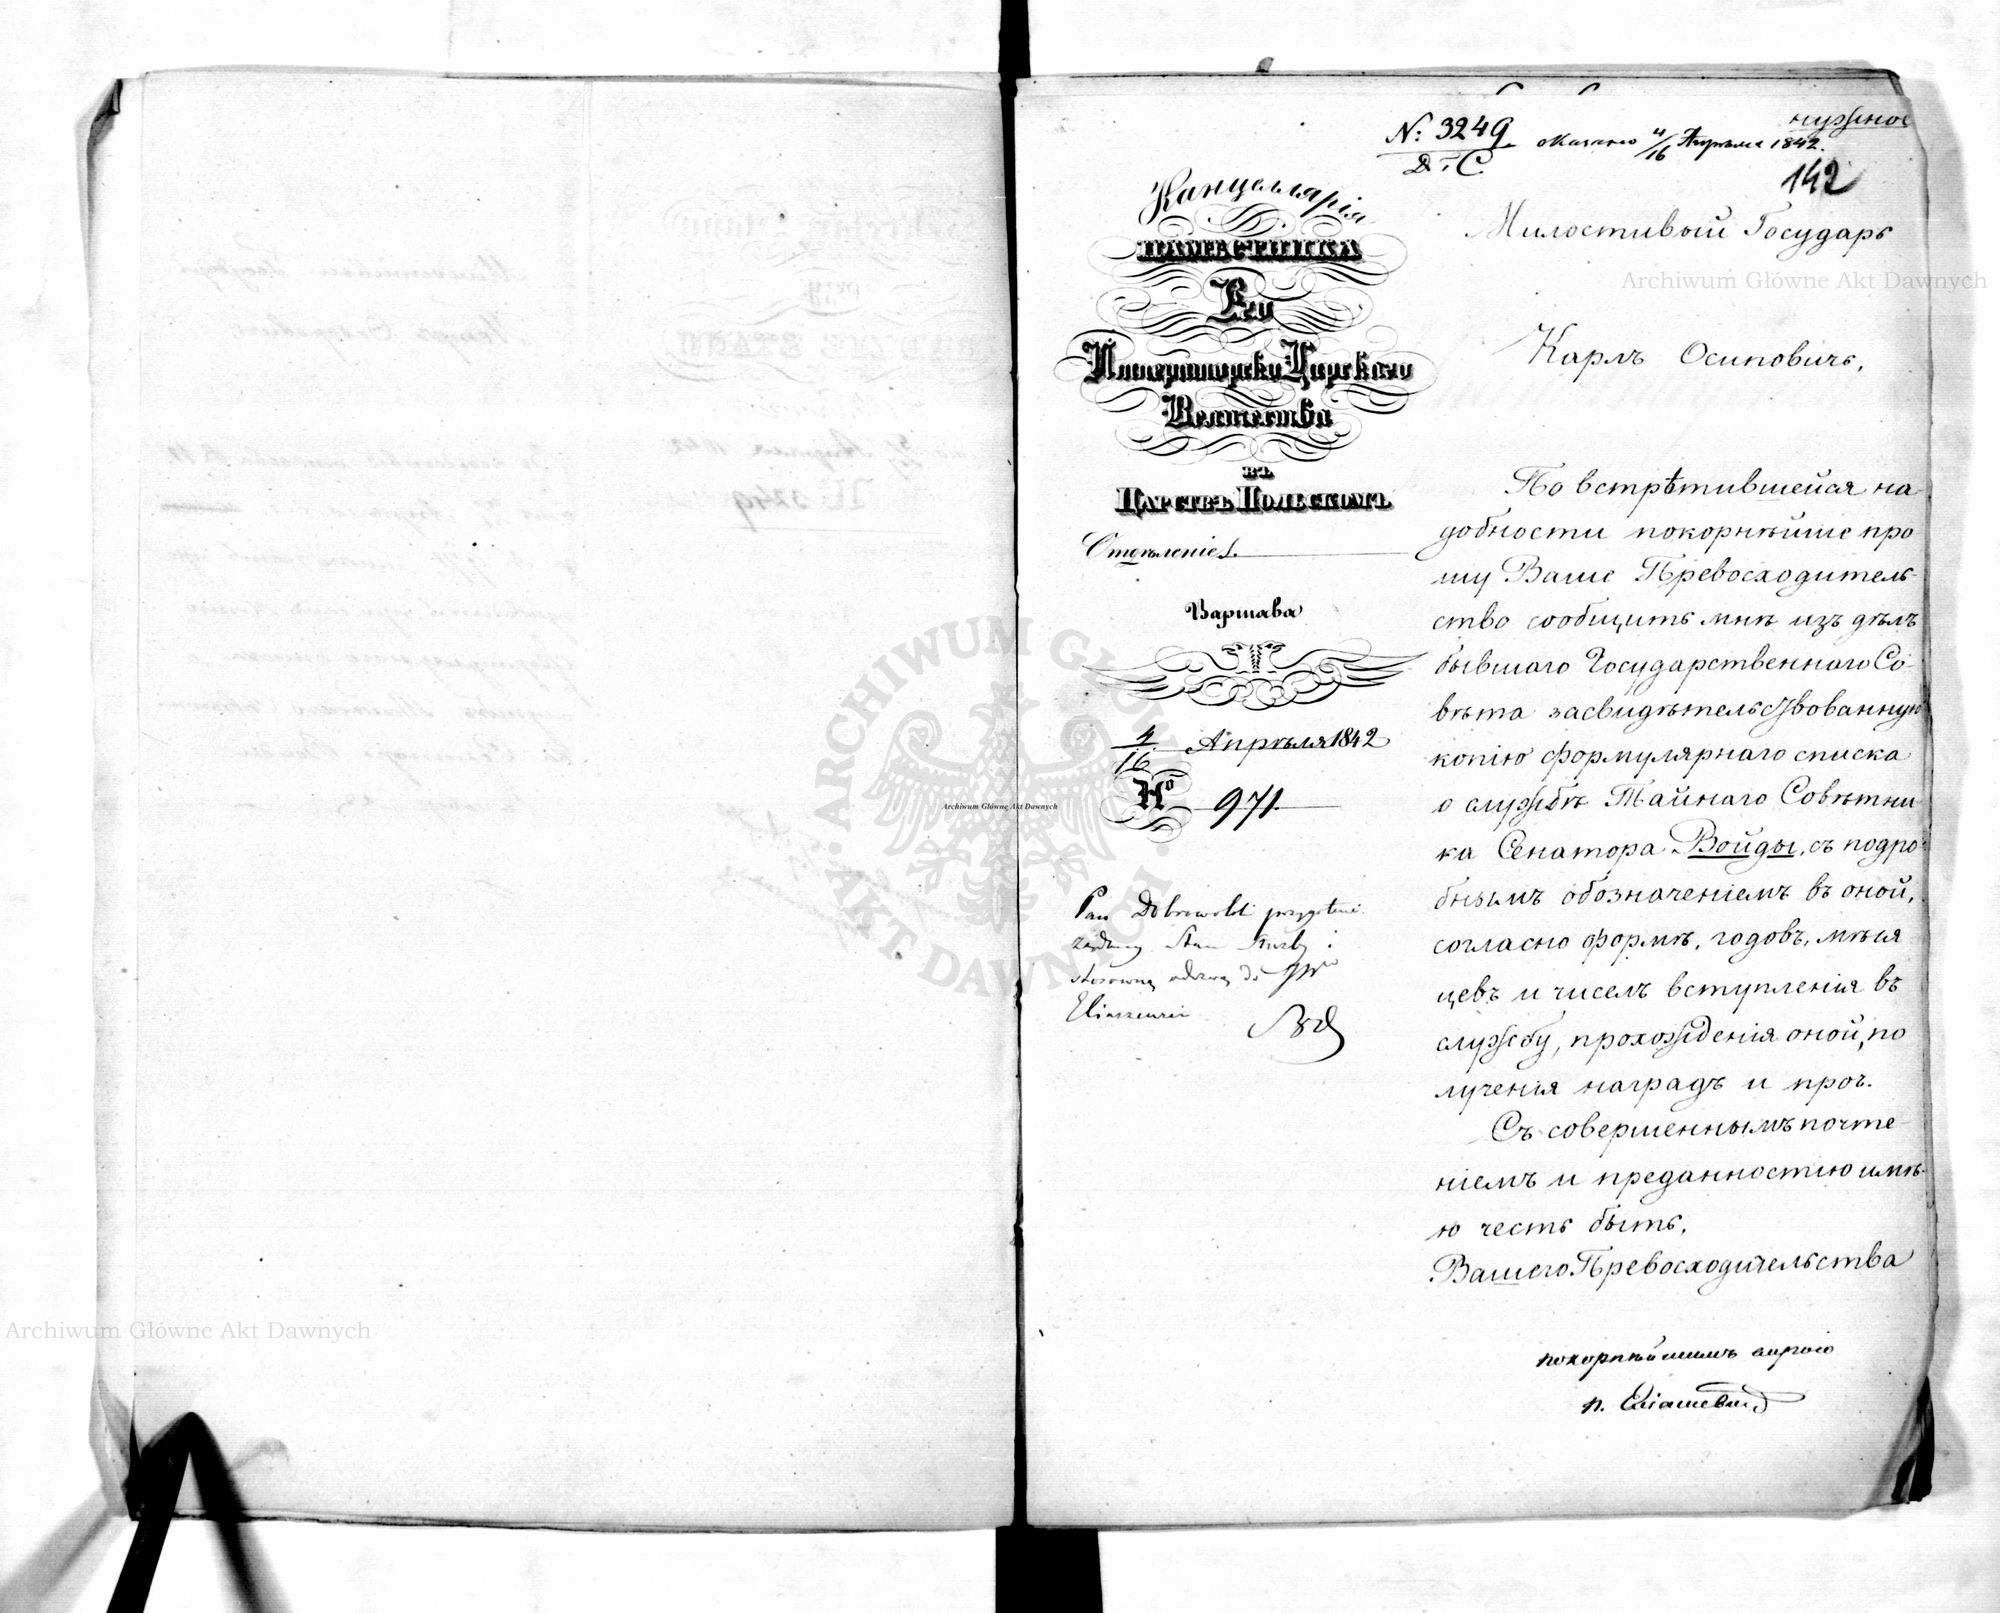 нужное
№ 3249
4/16 Апрѣля 1842.
142
Канцеллярія
НАМѢСТНИКА
Его
Императорско Царскаго
Величества
ВЪ
ЦАРСТВѢ ПОЛЬСКОМЪ
Отдѣленіе 1.
Варшава
4/16 Апрѣля 1842
№ 971.
Pan Dobrowolski
Stan służby i
do
Милостивый Государь
Карлъ Осиповичь,
По встрѣтившейся на-
добности покорнѣйше про
шу Ваше Превосходитель-
ство сообщить мнѣ изъ дѣлъ
бывшаго Государственнаго Со-
вѣта засвидѣтельствованную
копію формулярнаго списка
о службѣ Тайнаго Совѣтни
ка Сенатора Войды, съ подро-
бнымъ обозначеніемъ въ оной,
согласно формѣ, годовъ, мѣся
цевъ и чиселъ вступленія въ
службу, прохожденія оной, по
лученія наградъ и проч.
Съ совершеннымъ почте-
ніемъ и преданностію имѣ-
ю честь быть,
Вашего Превосходительства
покорнѣйшимъ слугою
Archiwum Główne Akt Dawnych
Archiwum Główne Akt Dawnych
Archiwum Główne Akt Dawnych
ARCHIWUM GŁÓWNE AKT DAWNYCH